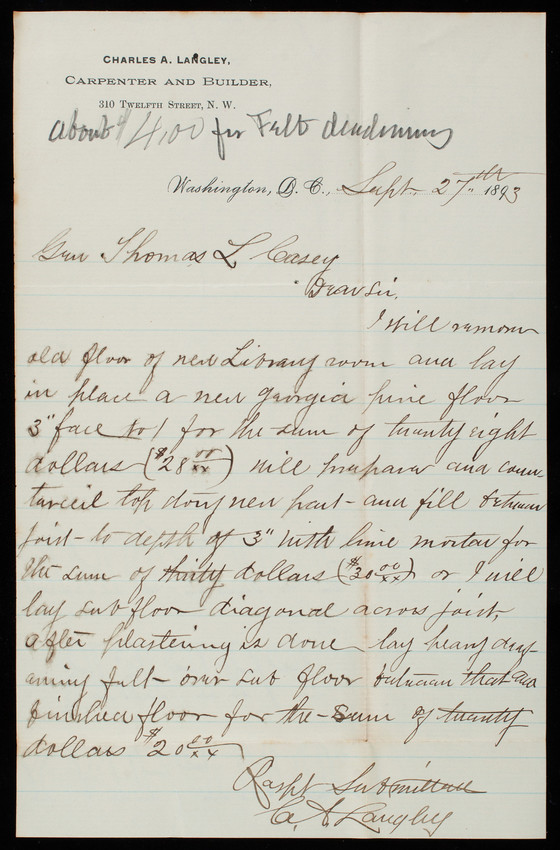 CHARLES A. LANGLEY,
CARPENTER AND BUILDER,
310 TWELFTH STREET, N. W.
about $4.00 for Felt deadening
Washington, D. C., Sept. 27th 1893
Gen Thomas L Casey
Dear Sir,
I will remove
old floor of new Library room and lay
in place a new georgia pine floor
3" face No 1 for the sum of twenty eight
dollars ($28 00/xx) will prepare and coun-
terceil top dony new part and fill between
joist to depth of 3" with lime mortar for
the sum of thirty dollars ($30 00/xx) or I will
lay sub floor diagonal across joist,
after plastering is done lay heavy deaf-
ening felt over sub floor between that and
finished floor for the sum of twenty
dollars $20 00/xx
Respt Submitted
C. A. Langley